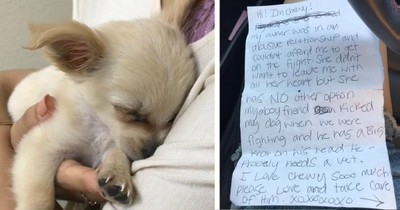 Hi! I'm chewy!
my owner was in an
abusive relationship and
couldnt afford me to get
on the flight. She didnt
want to leave me with
all her heart but she
has NO other option
my boyfriend kicked
my dog when we were
fighting and he has a BIG
knot on his head. He
probably needs a vet.
I Love chewy sooo much
please love and take care
of him. xoxoxoxoxo